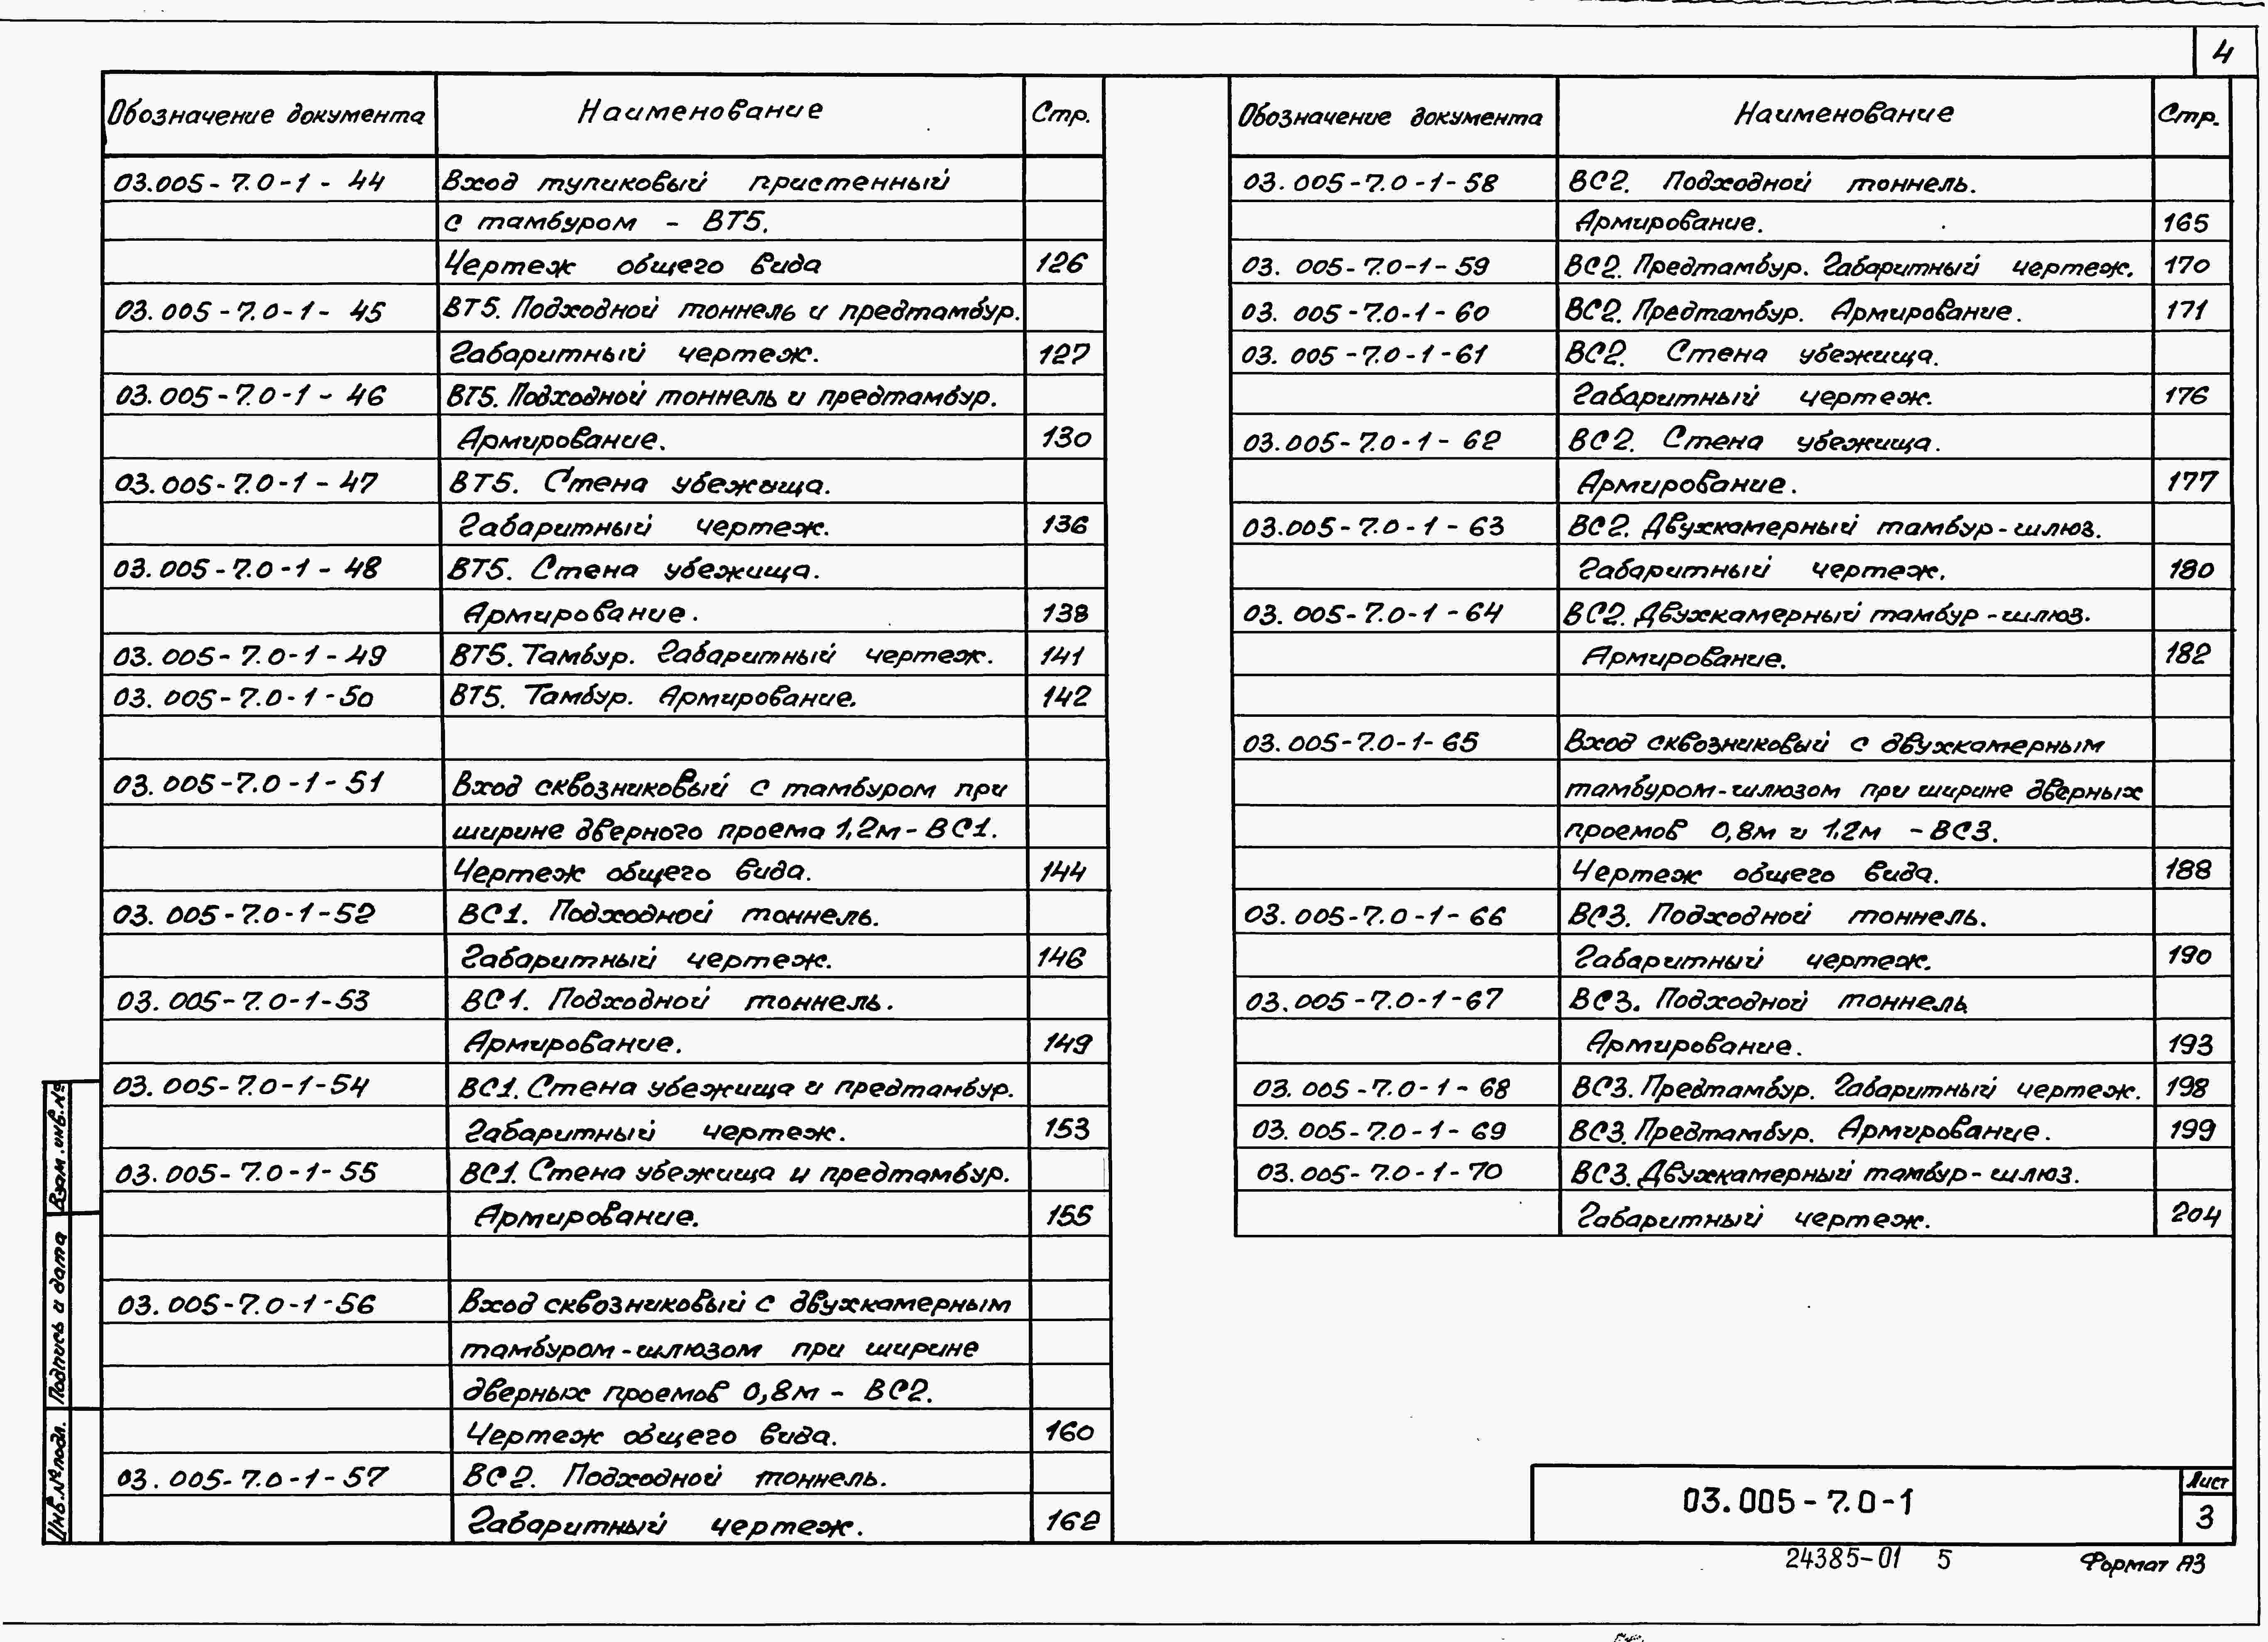 4
Обозначение документа Наименование Стр.
03.005-7.0-1-44 Вход тупиковый пристенный
с тамбуром - ВТ5.
Чертеж общего вида 126
03.005-7.0-1-45 ВТ5. Подходной тоннель и предтамбур.
Габаритный чертеж. 127
03.005-7.0-1-46 ВТ5. Подходной тоннель и предтамбур.
Армирование. 130
03.005-7.0-1-47 ВТ5. Стена убежища.
Габаритный чертеж. 136
03.005-7.0-1-48 ВТ5. Стена убежища.
Армирование. 138
03.005-7.0-1-49 ВТ5. Тамбур. Габаритный чертеж. 141
03.005-7.0-1-50 ВТ5. Тамбур. Армирование. 142
03.005-7.0-1-51 Вход сквозниковый с тамбуром при
ширине дверного проема 1,2м - ВС1.
Чертеж общего вида. 144
03.005-7.0-1-52 ВС1. Подходной тоннель.
Габаритный чертеж. 146
03.005-7.0-1-53 ВС1. Подходной тоннель.
Армирование. 149
03.005-7.0-1-54 ВС1. Стена убежища и предтамбур.
Габаритный чертеж. 153
03.005-7.0-1-55 ВС1. Стена убежища и предтамбур.
Армирование. 155
03.005-7.0-1-56 Вход сквозниковый с двухкамерным
тамбуром-шлюзом при ширине
дверных проемов 0,8м - ВС2.
Чертеж общего вида. 160
03.005-7.0-1-57 ВС2. Подходной тоннель.
Габаритный чертеж. 162
Обозначение документа Наименование Стр.
03.005-7.0-1-58 ВС2. Подходной тоннель.
Армирование. 165
03.005-7.0-1-59 ВС2. Предтамбур. Габаритный чертеж. 170
03.005-7.0-1-60 ВС2. Предтамбур. Армирование. 171
03.005-7.0-1-61 ВС2. Стена убежища.
Габаритный чертеж. 176
03.005-7.0-1-62 ВС2. Стена убежища.
Армирование. 177
03.005-7.0-1-63 ВС2. Двухкамерный тамбур-шлюз.
Габаритный чертеж. 180
03.005-7.0-1-64 ВС2. Двухкамерный тамбур-шлюз.
Армирование. 182
03.005-7.0-1-65 Вход сквозниковый с двухкамерным
тамбуром-шлюзом при ширине дверных
проемов 0,8м и 1,2м - ВС3.
Чертеж общего вида. 188
03.005-7.0-1-66 ВС3. Подходной тоннель.
Габаритный чертеж. 190
03.005-7.0-1-67 ВС3. Подходной тоннель
Армирование. 193
03.005-7.0-1-68 ВС3. Предтамбур. Габаритный чертеж. 198
03.005-7.0-1-69 ВС3. Предтамбур. Армирование. 199
03.005-7.0-1-70 ВС3. Двухкамерный тамбур-шлюз.
Габаритный чертеж. 204
Взам. инв. №
Подпись и дата
Инв. № подл.
03.005-7.0-1
Лист
3
24385-01 5
Формат А3